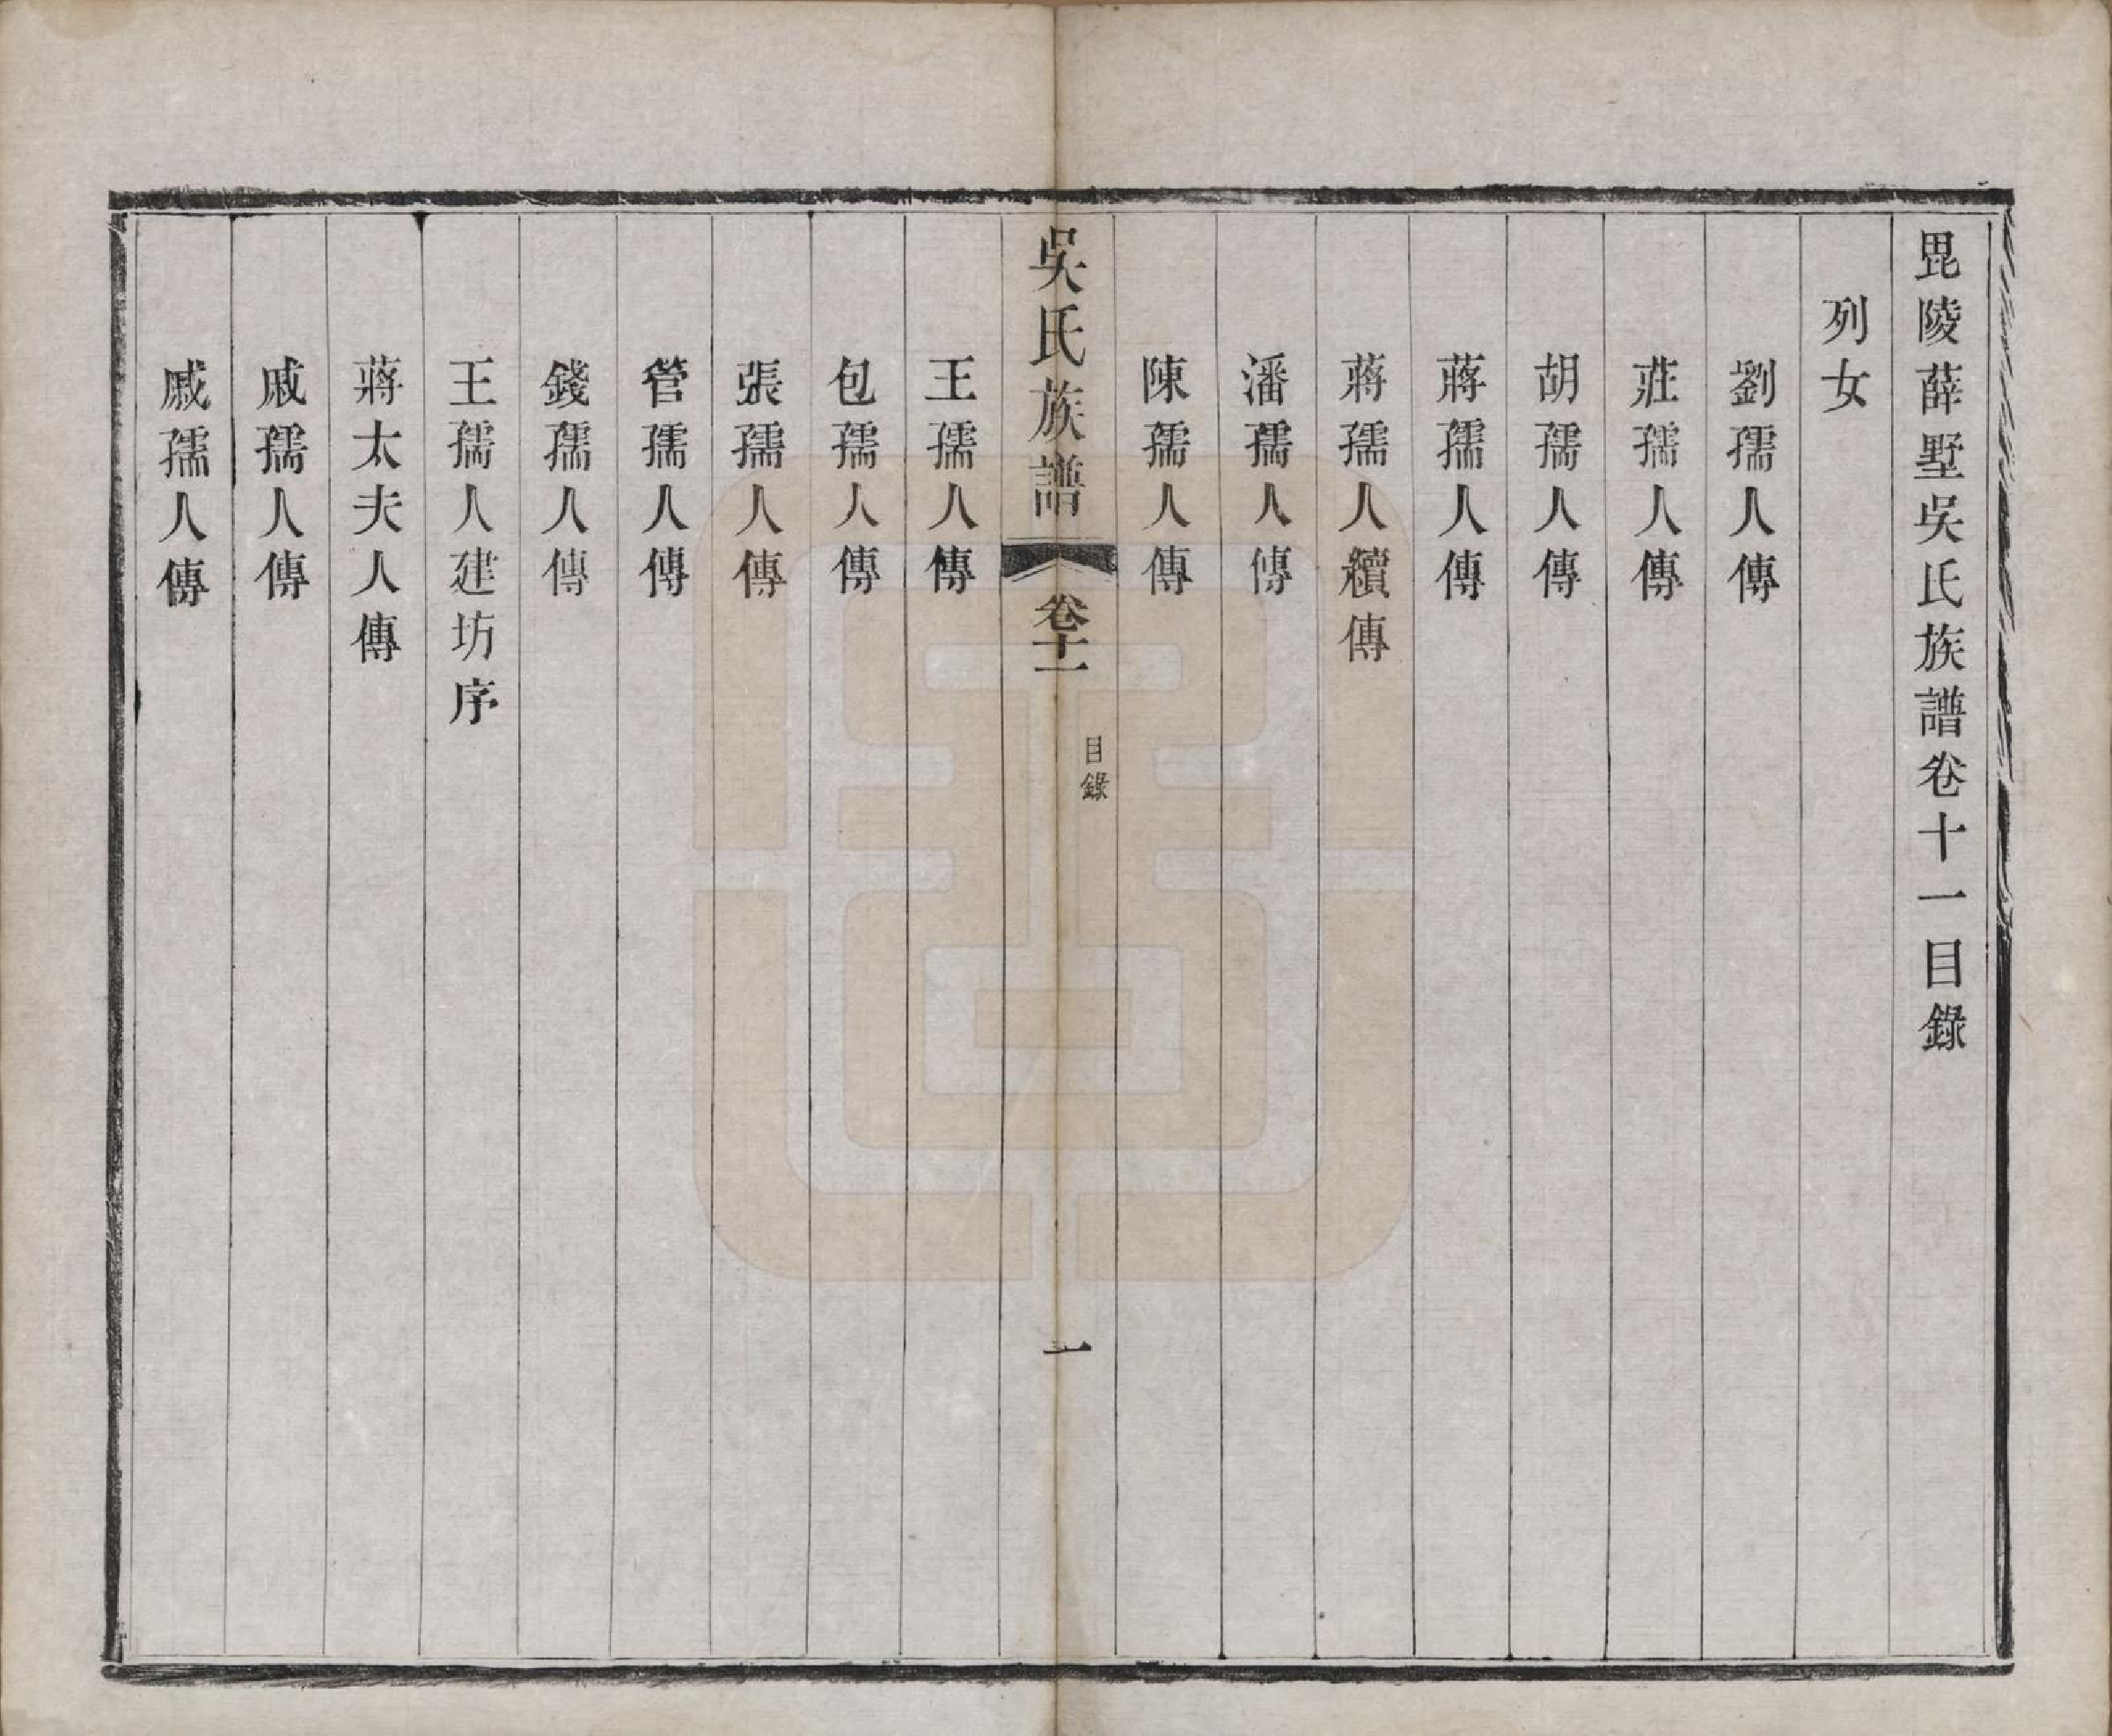 毘陵薛墅吳氏族譜卷十一目錄
列女
劉孺人傳
莊孺人傳
胡孺人傳
蔣孺人傳
蔣孺人續傳
潘孺人傳
陳孺人傳
吳氏族譜 卷十一 目錄 一
王孺人傳
包孺人傳
張孺人傳
管孺人傳
錢孺人傳
王孺人建坊序
蔣太夫人傳
戚孺人傳
戚孺人傳